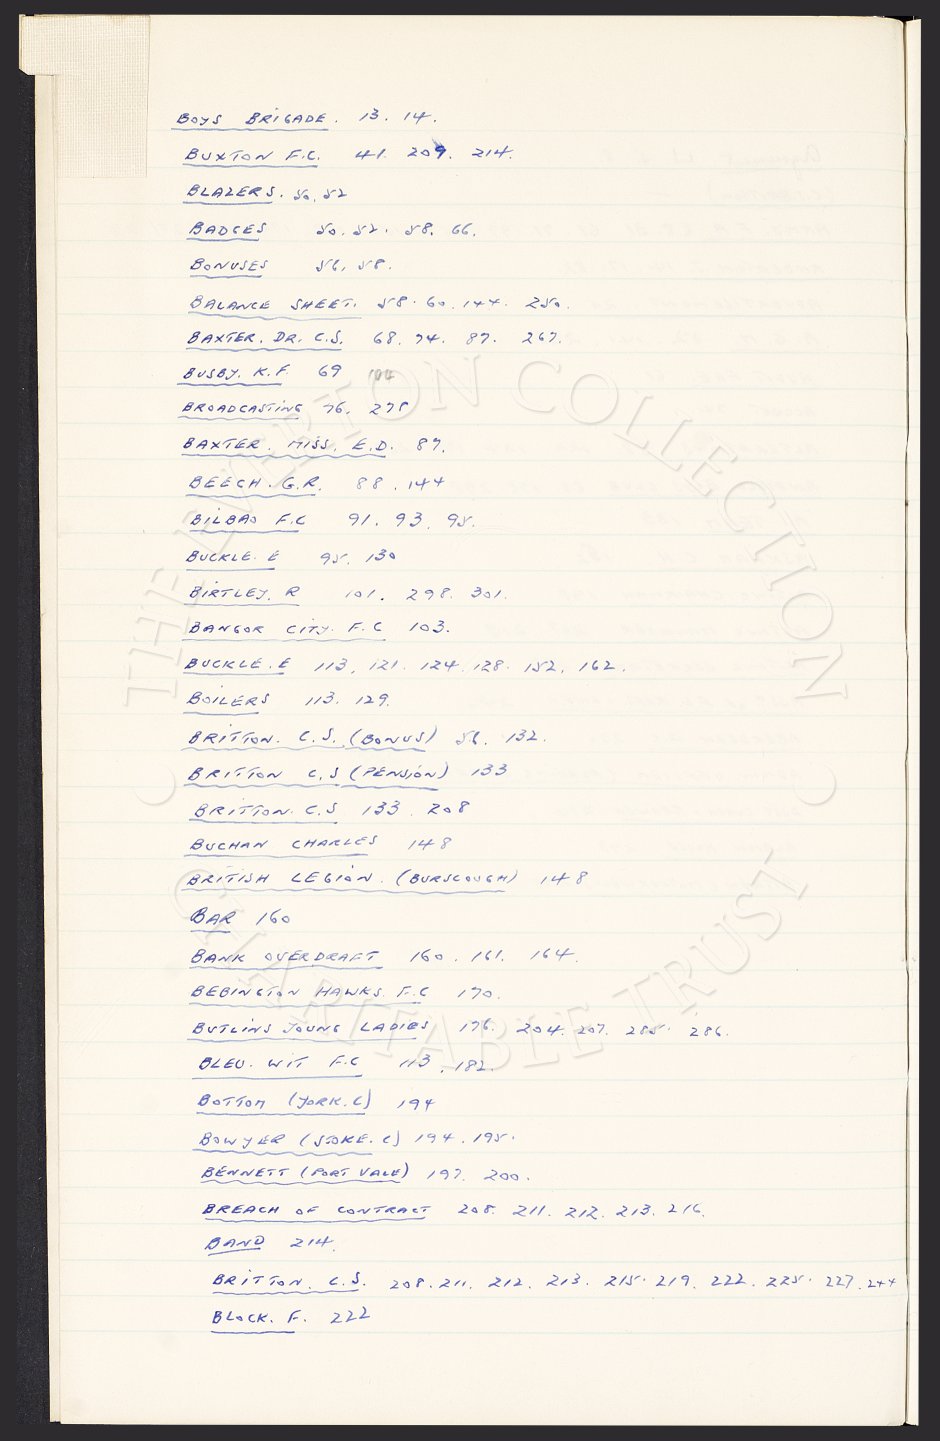 BOYS BRIGADE. 13. 14.
BUXTON F.C. 41. 209. 214.
BLAZERS. 50. 52
BADGES 50. 52. 58. 66.
BONUSES 56. 58.
BALANCE SHEET. 58. 60. 144. 250.
BAXTER. DR. C.S. 68. 74. 87. 267.
BUSBY. K.F. 69 104
BROADCASTING 76. 278
BAXTER. MISS. E.D. 87.
BEECH. G.R. 88. 144
BILBAO F.C 91. 93. 95.
BUCKLE. E 95. 130
BIRTLEY. R 101. 298. 301.
BANGOR CITY. F.C 103.
BUCKLE. E 113. 121. 124. 128. 152. 162.
BOILERS 113. 129.
BRITTON. C.S. (BONUS) 56. 132.
BRITTON C.S (PENSION) 133
BRITTON. C.S 133. 208
BUCHAN CHARLES 148
BRITISH LEGION. (BURSCOUGH) 148
BAR 160
BANK OVERDRAFT 160. 161. 164.
BEBINGTON HAWKS. F.C 170.
BUTLINS YOUNG LADIES 176. 204. 207. 285. 286.
BLEU. WIT F.C 113. 182.
BOTTOM (YORK. C) 194
BOWYER (STOKE. C) 194. 195.
BENNETT (PORT VALE) 197. 200.
BREACH OF CONTRACT 208. 211. 212. 213. 216.
BAND 214.
BRITTON. C.S. 208. 211. 212. 213. 215. 219. 222. 225. 227. 244
BLOCK. F. 222
THE EVERTON COLLECTION
CHARITABLE TRUST